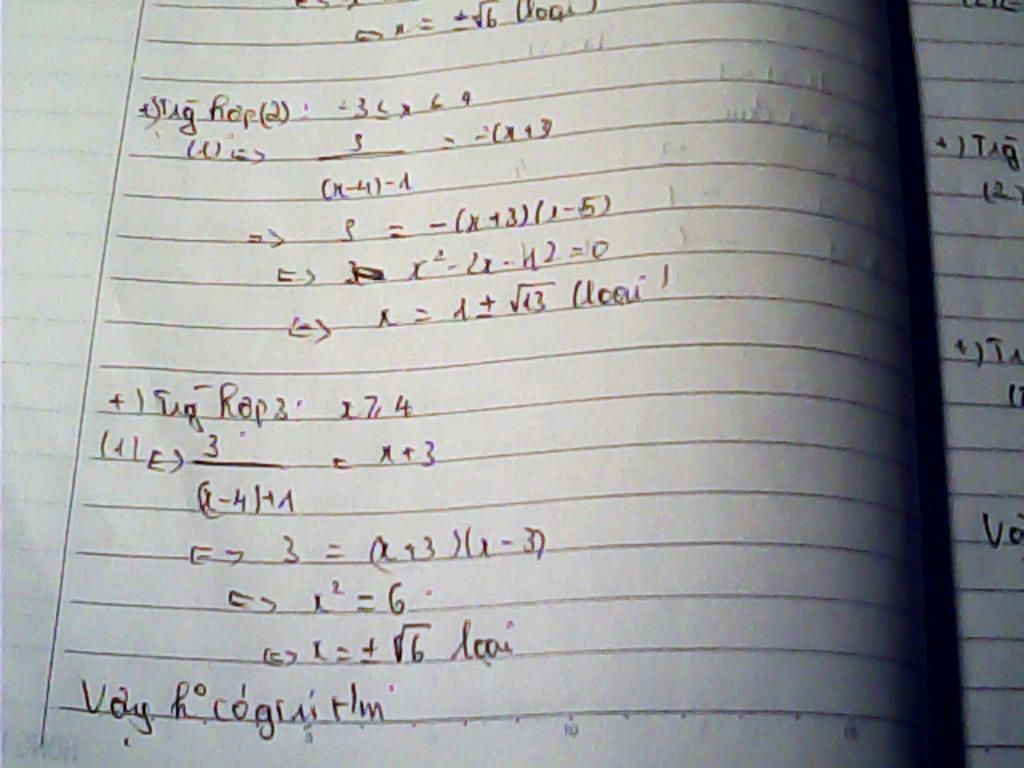 <=> x = ±√6 (loại)
+) Trg hợp (2): -3 ≤ x < 4
(1) <=> 3 / (x-4)-1 = -(x+3
=> 3 = -(x+3)(x-5)
<=> x² - 2x - 12 = 0
<=> x = 1 ± √13 (loại)
+) Trg hợp 3: x ≥ 4
(1) <=> 3 / (x-4)+1 = x+3
<=> 3 = (x+3)(x-3)
<=> x² = 6
<=> x = ±√6 loại
Vậy k° có giá trị t/m
5 10 15
+) Trg
(2)
+) Tr
Vậ